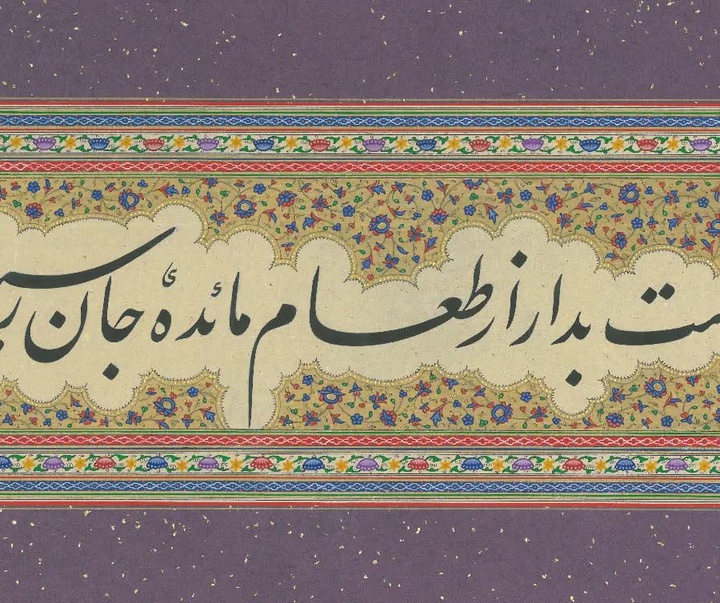 ست بدار از طعام مائدهٔ جان رسی